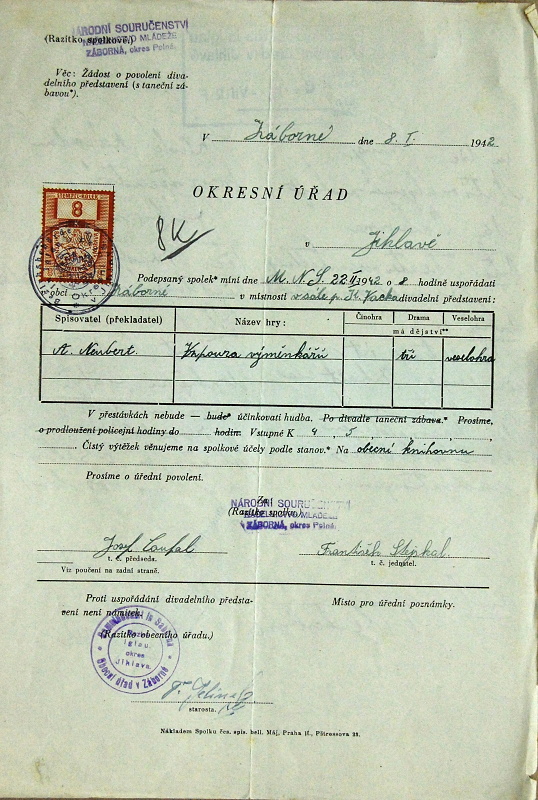 NÁRODNÍ SOURUČENSTVÍ
(Razítko spolkové.)
ZÁBORNÁ, okres Polná.
Věc: Žádost o povolení diva-
delního představení (s taneční zá-
bavou*).
V Záborné dne 8. I. 1942
OKRESNÍ ÚŘAD
8
8K
v Jihlavě
Podepsaný spolek* míní dne M. N. S. 22.II.1942 o 8 hodině uspořádati
v obci Záborné v místnosti v sále p. Vacka divadelní představení:
Spisovatel (překladatel) Název hry: Činohra Drama Veselohra
má dějství**
A. Neubert. Vzpoura výměnkářů tři veselohra
V přestávkách nebude — bude* účinkovati hudba. Po divadle taneční zábava.* Prosíme,
o prodloužení policejní hodiny do hodin. Vstupné K 4, 5,
Čistý výtěžek věnujeme na spolkové účely podle stanov.* Na obecní knihovnu
Prosíme o úřední povolení.
Za
NÁRODNÍ SOURUČENSTVÍ
(Razítko spolku)
ZÁBORNÁ, okres Polná.
Josef Loufal František
t. č. předseda. t. č. jednatel.
Viz poučení na zadní straně.
Proti uspořádání divadelního předsta-
vení není námitek.
Místo pro úřední poznámky.
(Razítko obecního úřadu.)
Bezirk
Iglau.
okres
Jihlava.
Obecní úřad v Záborné
starosta.
Nákladem Spolku čes. spis. bell. Máj, Praha II., Pštrossova 23.